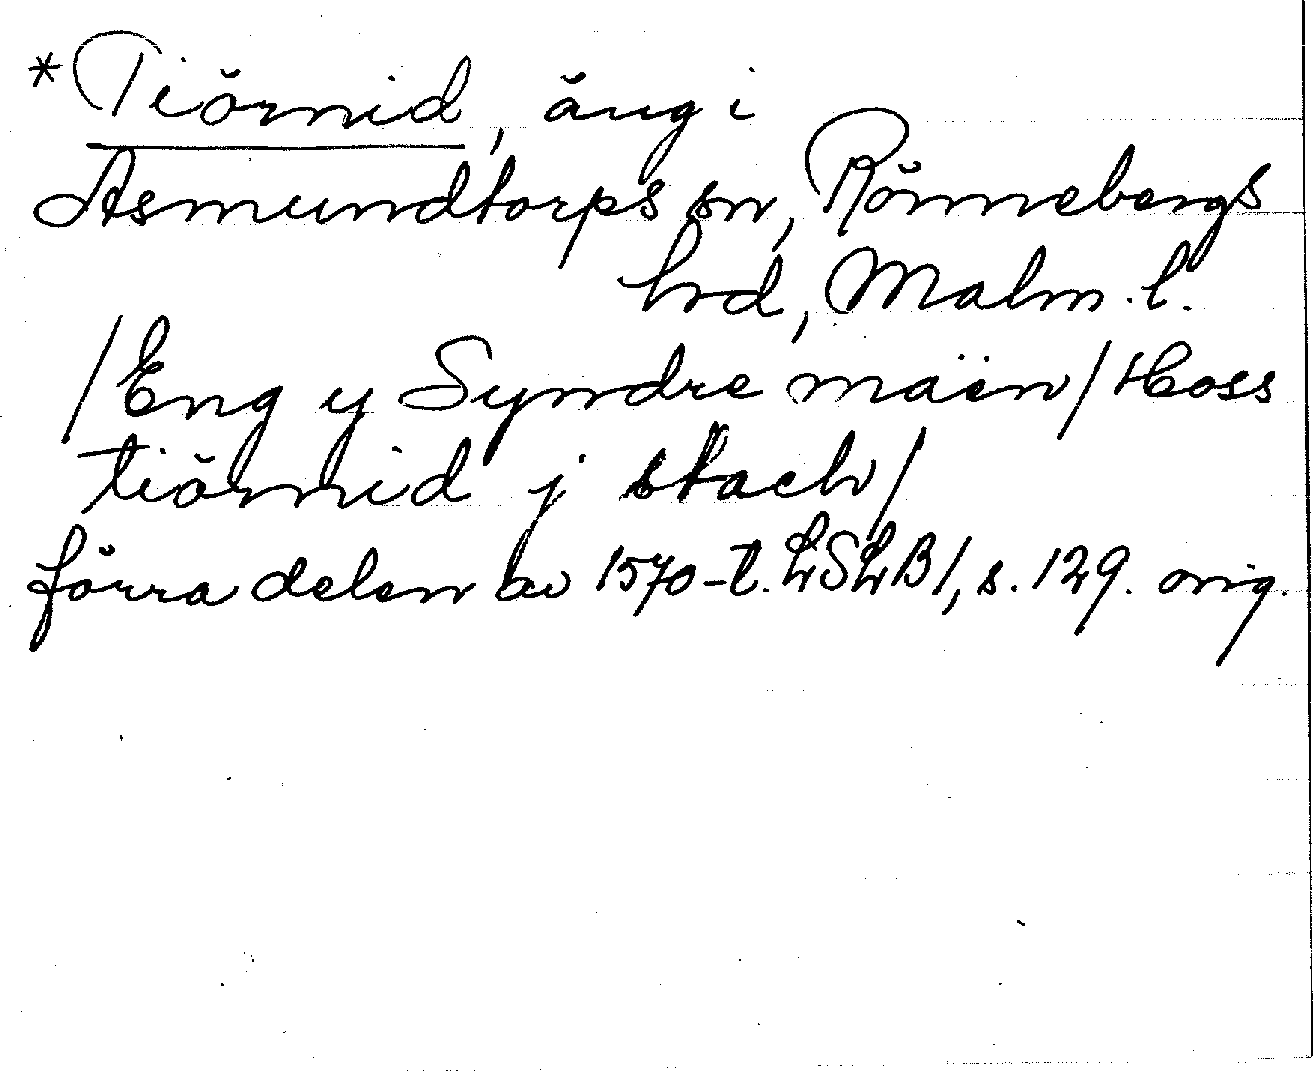 *Tiörnid, äng i
Asmundtorps sn, Rönnebergs
hrd, Malm. l.
/Eng y Syndre maën/Hoss
tiörnid j stach/
förra delen av 1570-t. LSLB1, s. 129. orig.